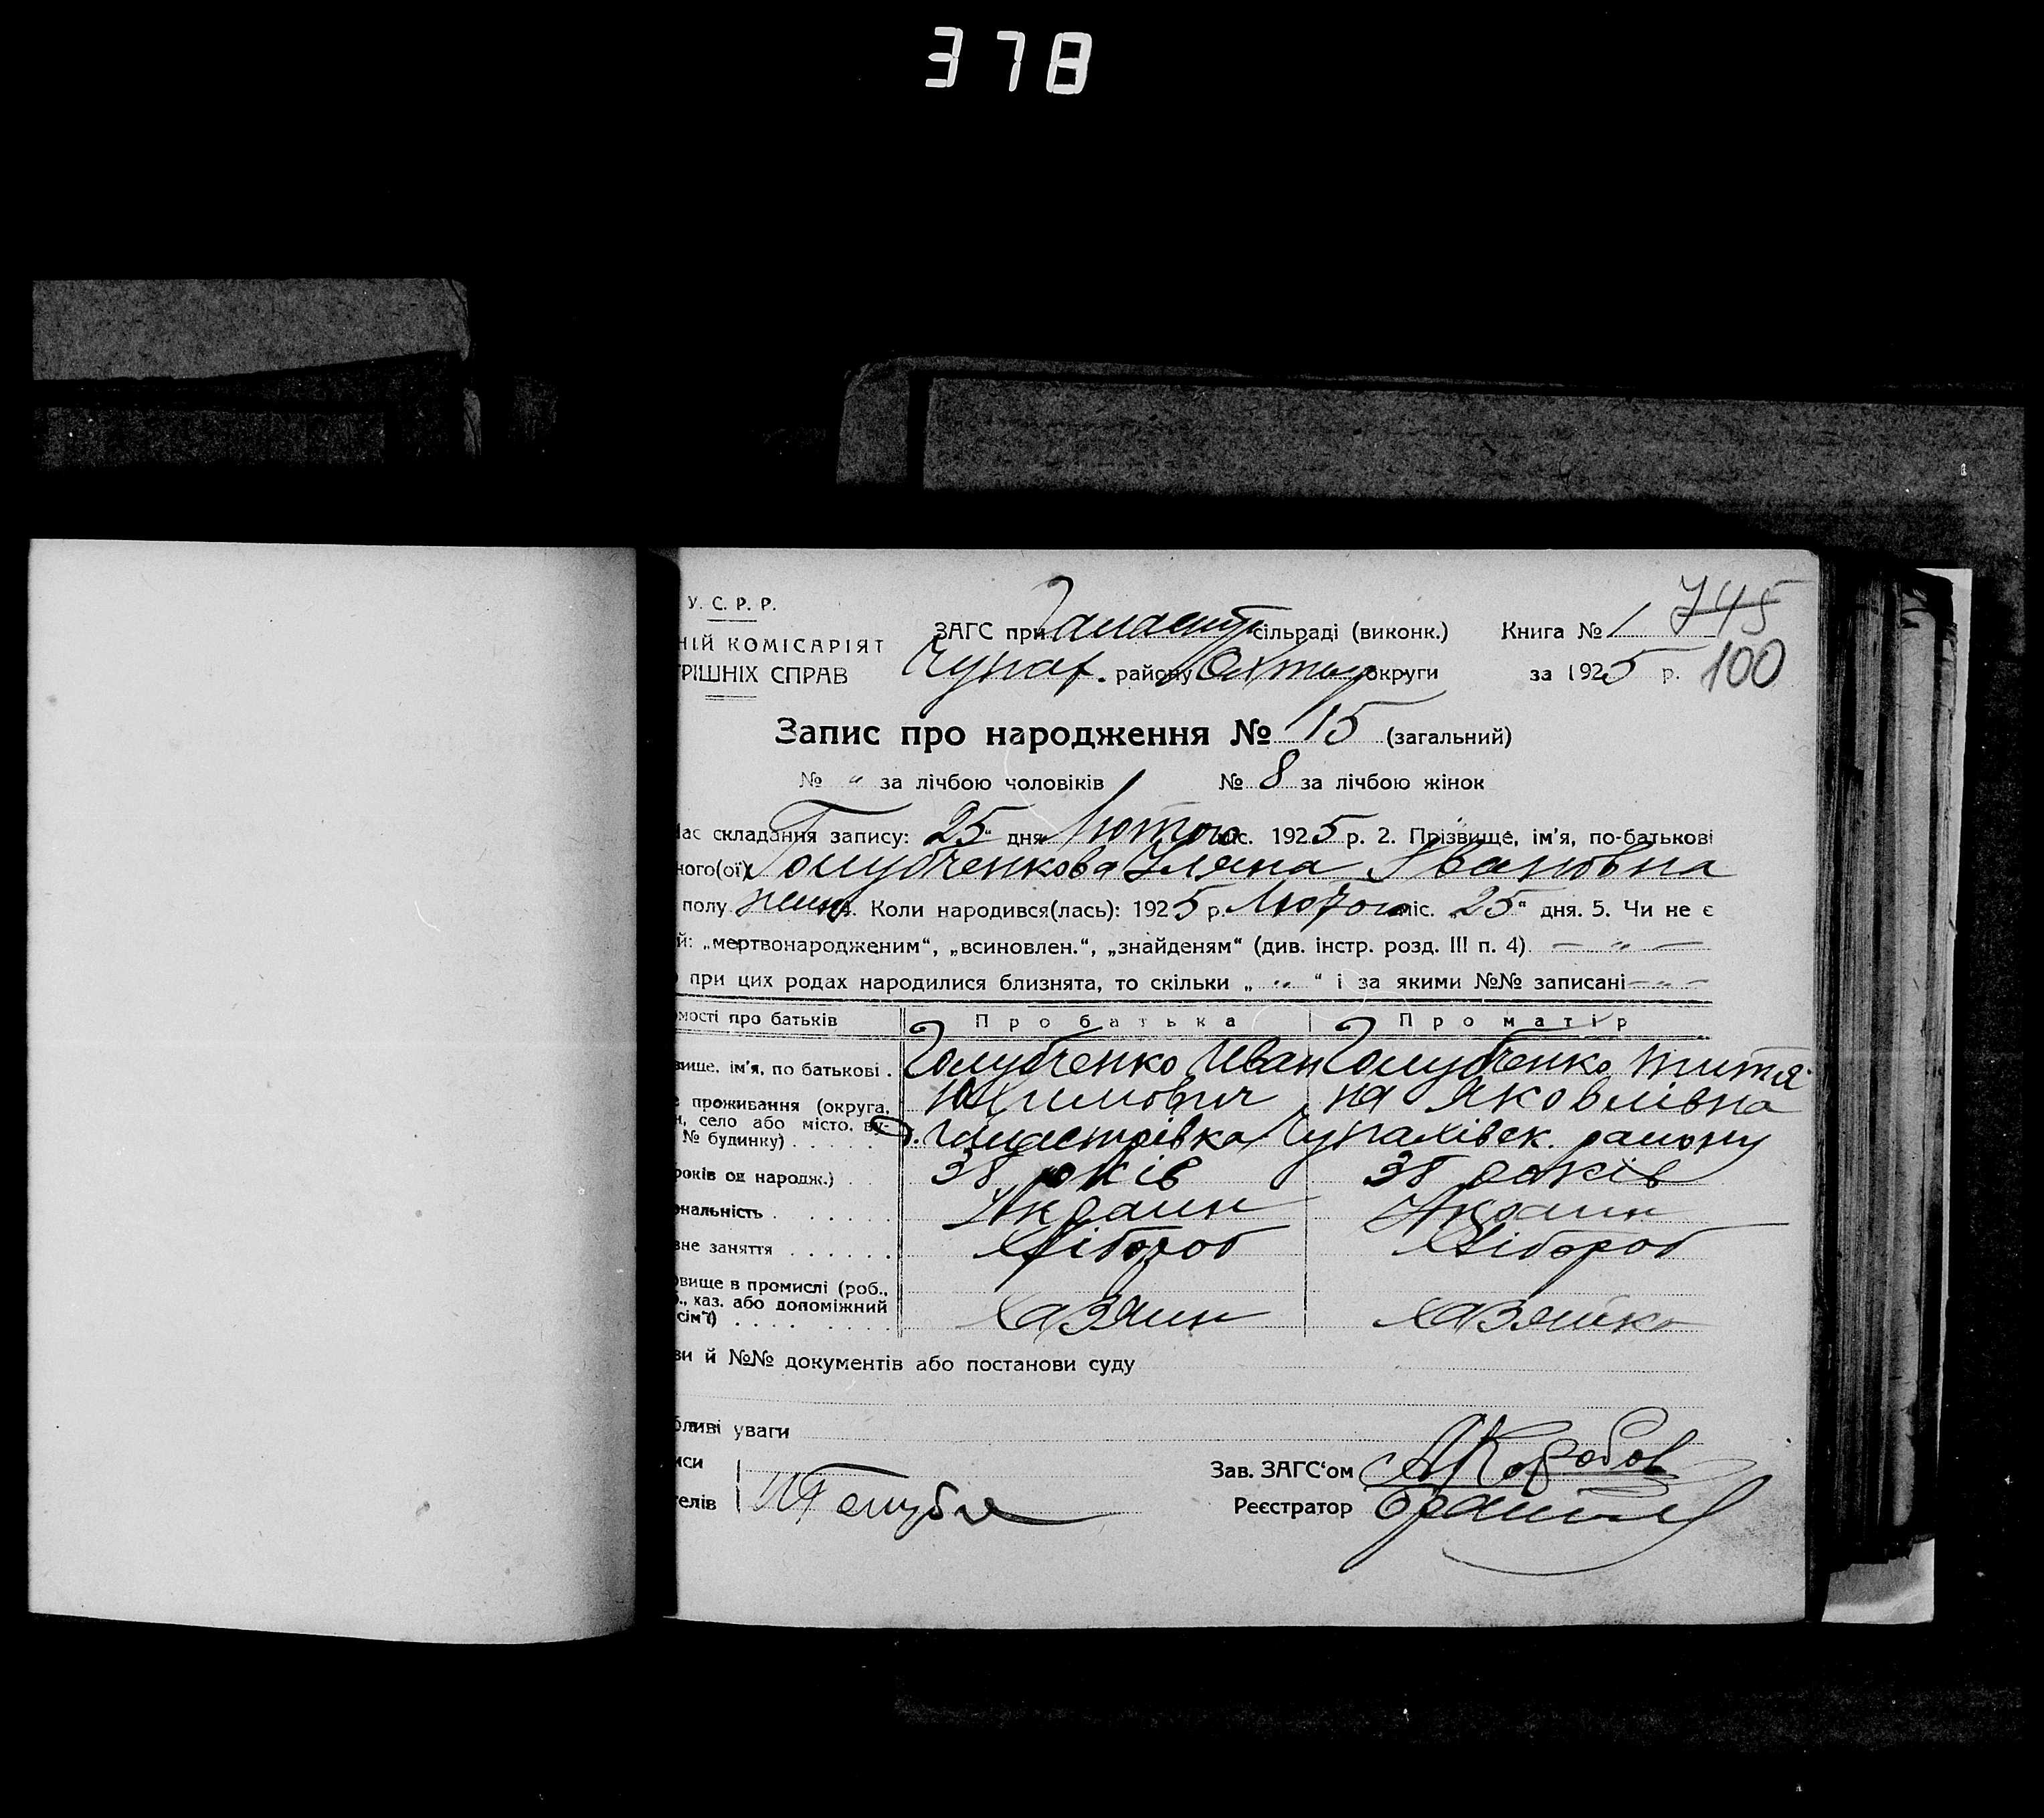 378
У. С. Р. Р.
745
ЗАГС при Галаст сільраді (виконк.) Книга № 1
НІЙ КОМІСАРІЯТ
Чупах. району Охтир округи за 1925 р. 100
РІШНІХ СПРАВ
Запис про народження № 15 (загальний)
№ „ за лічбою чоловіків № 8 за лічбою жінок
час складання запису: 25 дня Лютого міс. 1925 р. 2. Прізвище, ім'я, по-батькові
ного(ої) Голубченкова Уляна Івановна
полу жін 4. Коли народився(лась): 1925 р. Лютого міс. „25“ дня. 5. Чи не є
й: „мертвонародженим“, „всиновлен.“, „знайденям“ (див. інстр. розд. III п. 4) — „ —
при цих родах народилися близнята, то скільки „ „ “ і за якими №№ записані — „ —
мості про батьків Про батька Про матір
вище, ім'я, по батькові . Голубченко Иван Голубченко Титя-
Юхимович на Яковлівна
проживання (округа,
н, село або місто, ву-
№ будинку) . . . . . х. Галастрівка Чупахівск. району
років од народж.) . . 38 років 38 років
ональність . . . . . . Украин Украин
вне заняття . . . . . . Хлібороб Хлібороб
овище в промислі (роб.,
б., каз. або допоміжний
сім'ї) . . . . . . . . Хазяин Хазяйка
ви й №№ документів або постанови суду
бливі уваги
иси
Зав. ЗАГС'ом А Коробов
телів И Голубче
Реєстратор